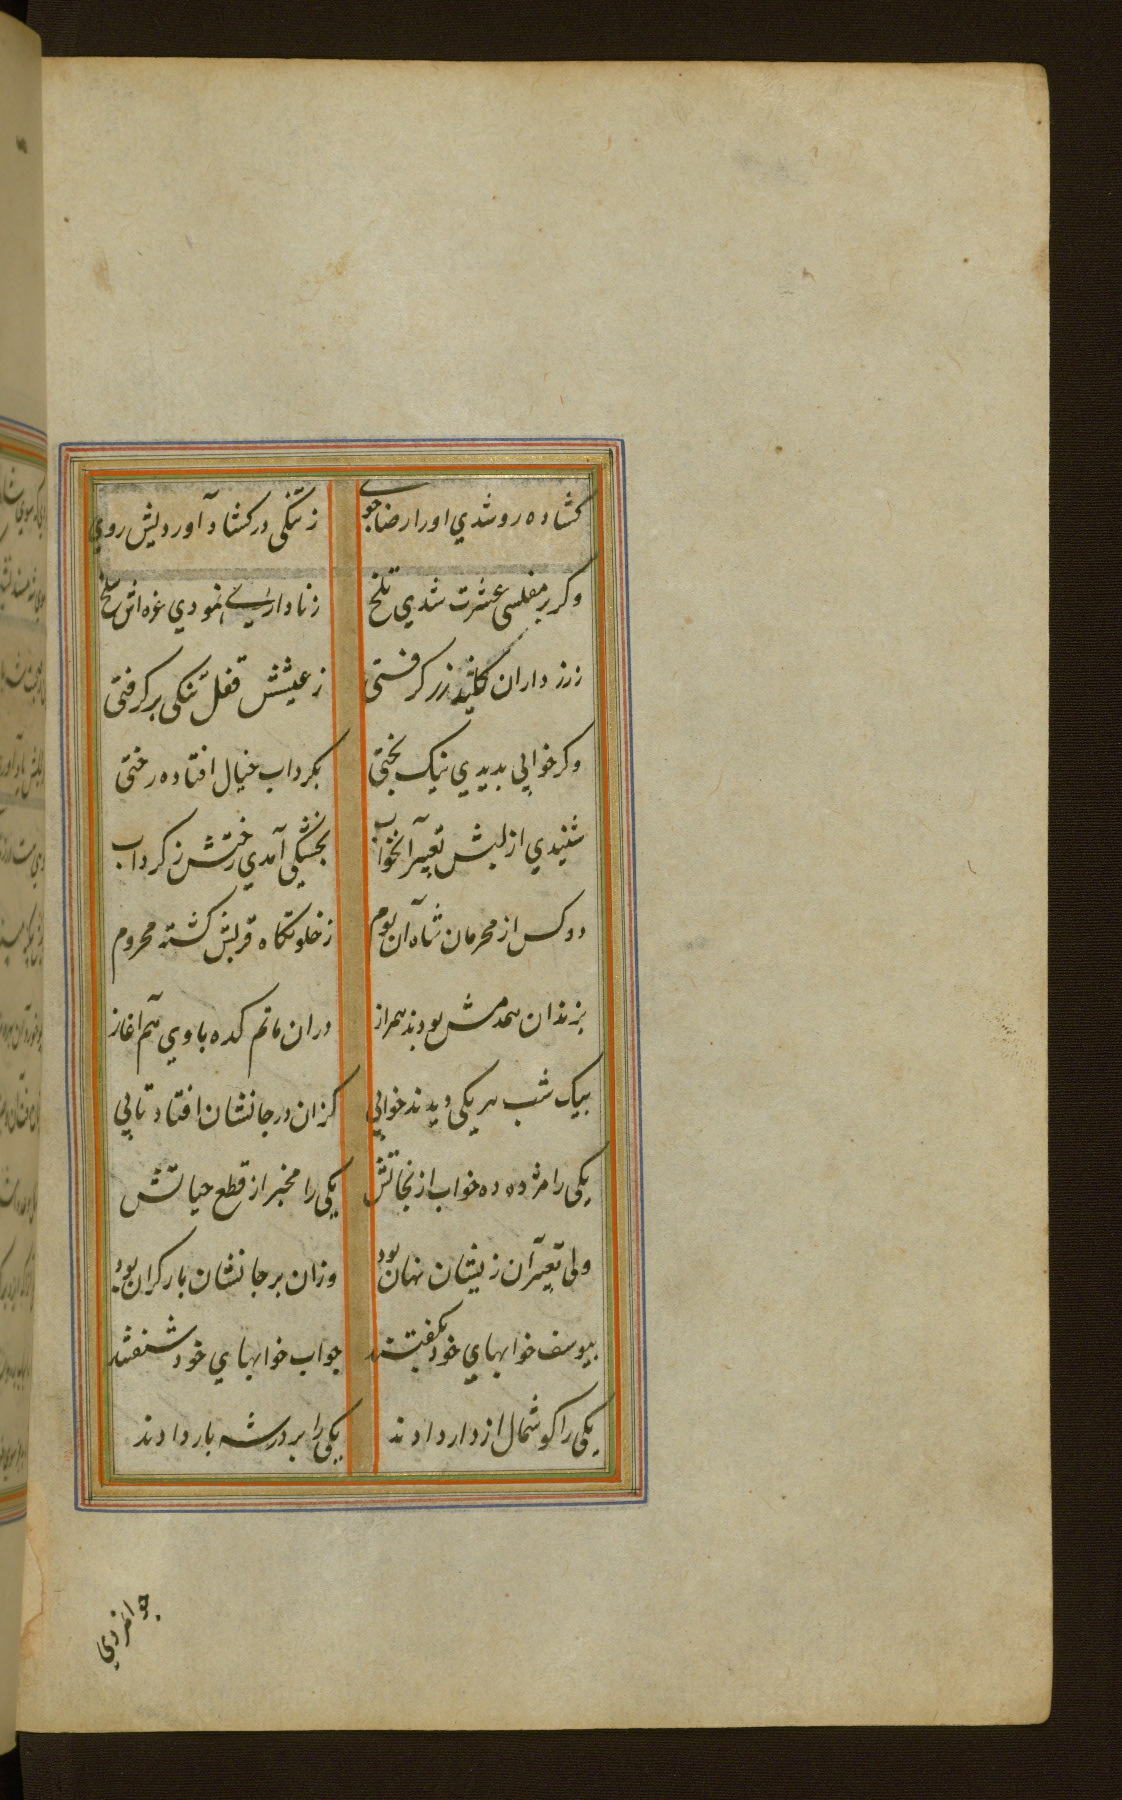 کشاده رو شدي او را رضا جوی ز تنکی در کشاد آوردیش روي
وکر بر مفلسی عشرت شدي تلخ ز ناداریی نمودي غره اش سلخ
ز زرداران کلید زر کرفتی ز عیشش قفل تنکی بر کرفتی
وکر خوابی بدیدي نیک بختی بکرداب خیال افتاده رختی
شنیدي از لبش تعبیر آنخواب بخشکی آمدي رختش ز کرداب
دو کس از محرمان شاه آن بوم ز خلوتکاه قربش کشته محروم
بزندان همدمش بودند همراز دران ماتم کده با وي هم آغاز
بیک شب هر یکی دیدند خوابی کزان در جانشان افتاد تابی
یکی را مژده ده خواب از نجاتش یکی را مخبر از قطع حیاتش
ولی تعبیر آن زیشان نهان بود وزان بر جانشان بار کران بود
بیوسف خوابهاي خود بکفتند جواب خوابهاي خود شنفتند
یکی را کوشمال از دار دادند یکی را بر در شه بار دادند
جوانمردي